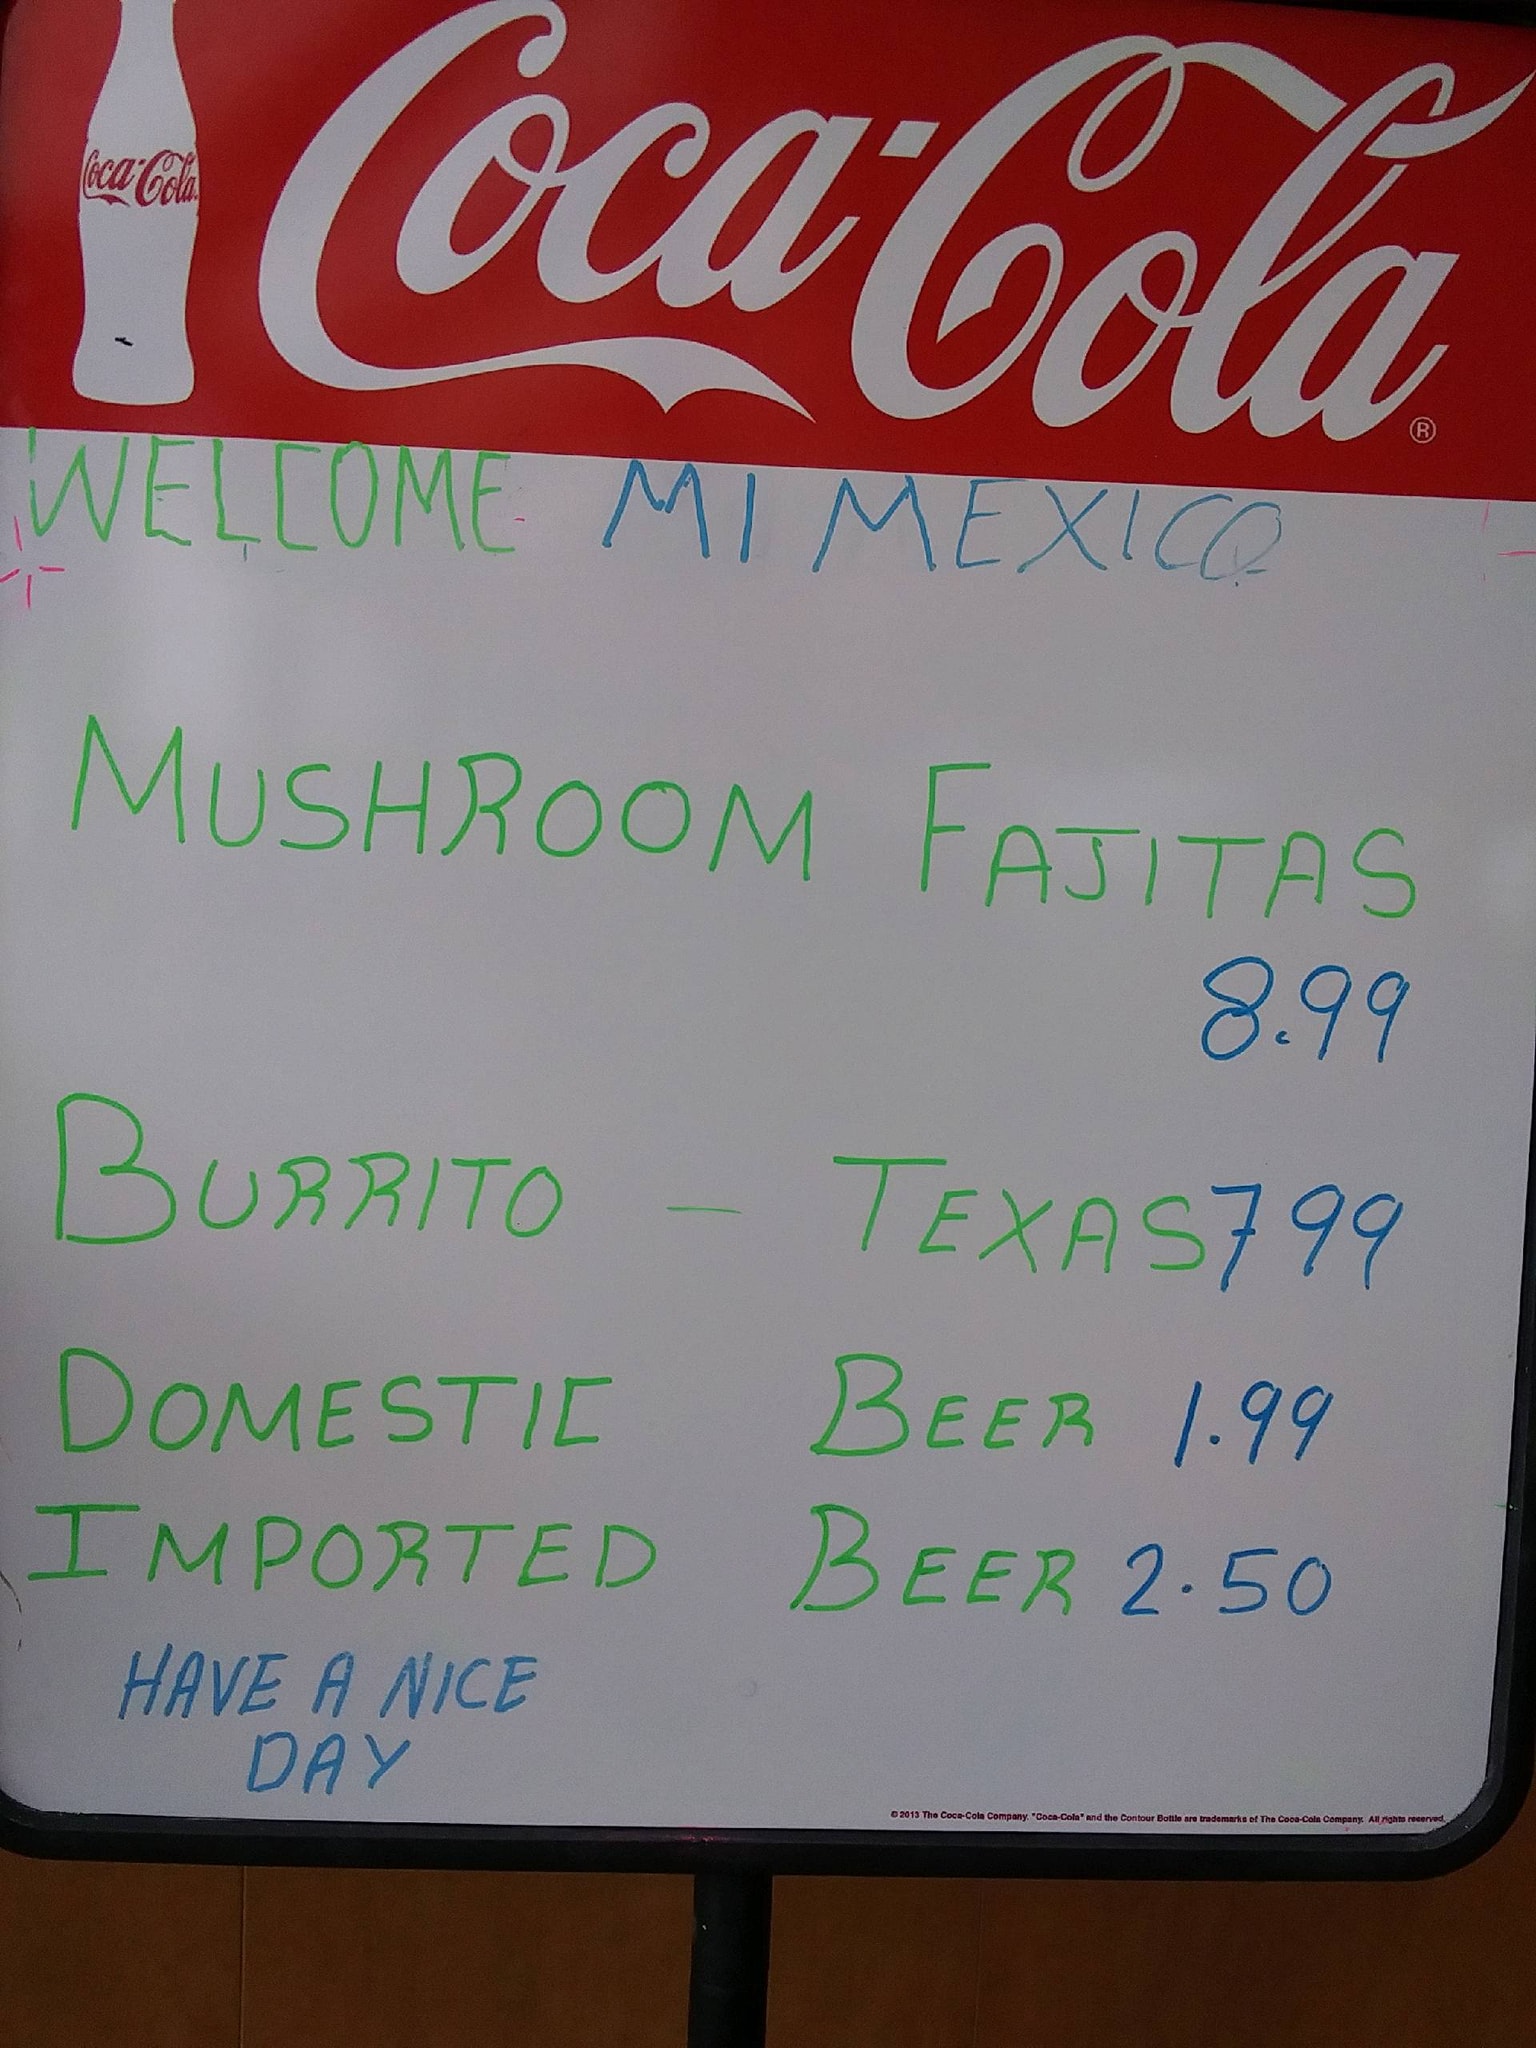 Coca-Cola
Coca-Cola®
WELCOME MI MEXICO
MUSHROOM FAJITAS
8.99
BURRITO - TEXAS 799
DOMESTIC BEER 1.99
IMPORTED BEER 2.50
HAVE A NICE
DAY
© 2013 The Coca-Cola Company. "Coca-Cola" and the Contour Bottle are trademarks of The Coca-Cola Company. All rights reserved.